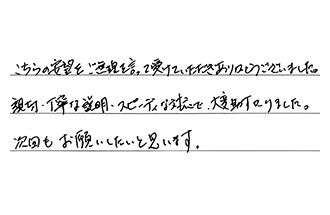 こちらの要望をご無理を言って受けていただきありがとうございました。
親切・丁寧な説明・スピーディな対応で、大変助かりました。
次回もお願いしたいと思います。